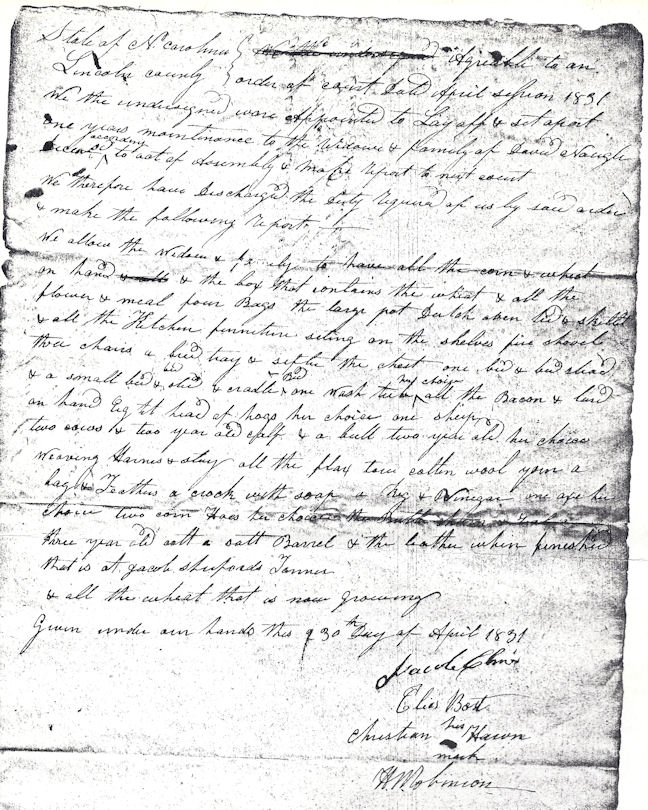 State of N carolina } Agreable to an
Lincoln county } order of court Datd April sesion 1831
We the undersigned were Appointed to Lay off & set apart
one years maintenance to the Widdow & family of David Naugle
Deceased according to act of Assembly & Make report to next court
We therefore have Discharged the Duty Required of us by said order
& make the following report
We allow the Widow & family to have all the corn & wheat
on hand & the box that contains the wheat & all the
flower & meal four Bags the large pot Dutch oven led & skillet
& all the Kitchen furniture siting on the shelves fire shovel
three chairs a tray & sifter the chest one bed & bed stead
& a small bed & sted & cradle & Bed one wash tub her choice all the Bacon & lard
on hand Eight head of hogs her choice one sheep
two cows & two year old calf & a bull two year old her choice
weaving Harnes & slay all the flax tow cotten wool yarn a
bag & Feathers a crock with soap a Keg & Vinegar one axe her
choice two corn Hoes her choice
three year old a salt Barrel & the leather when finished
that is at Jacob Shufords Tanner
& all the wheat that is now growing
Given under our hands this 30th Day of April 1831
Jacob
Elias Bost
Christian his Hawn
mark
H Robinson